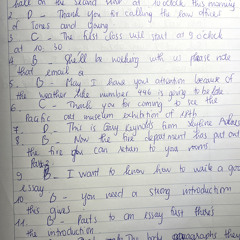 ball on the second shelf at 10 o'clock this morning
2. D - Thank you for calling the law office
of Jones and
3. C - The first class will start at 9 o'clock
at 10:30
4. B - She'll be working with us please note
that email a
5. B - May I have your attention because of
the weather ride number 446 is going to be late
6. C - Thank you for coming to see the
Pacific art museum exhibition of
7. D - This is Gary from Skyline Airlines
8. B - Now the fire department has put out
the fire you can return to you rooms
Part 2
9 B - I want to know how to write a good
essay
10 B - you need a strong introduction
this gives
11 B - Parts to an essay first there's
the introduction
The body paragraphs there